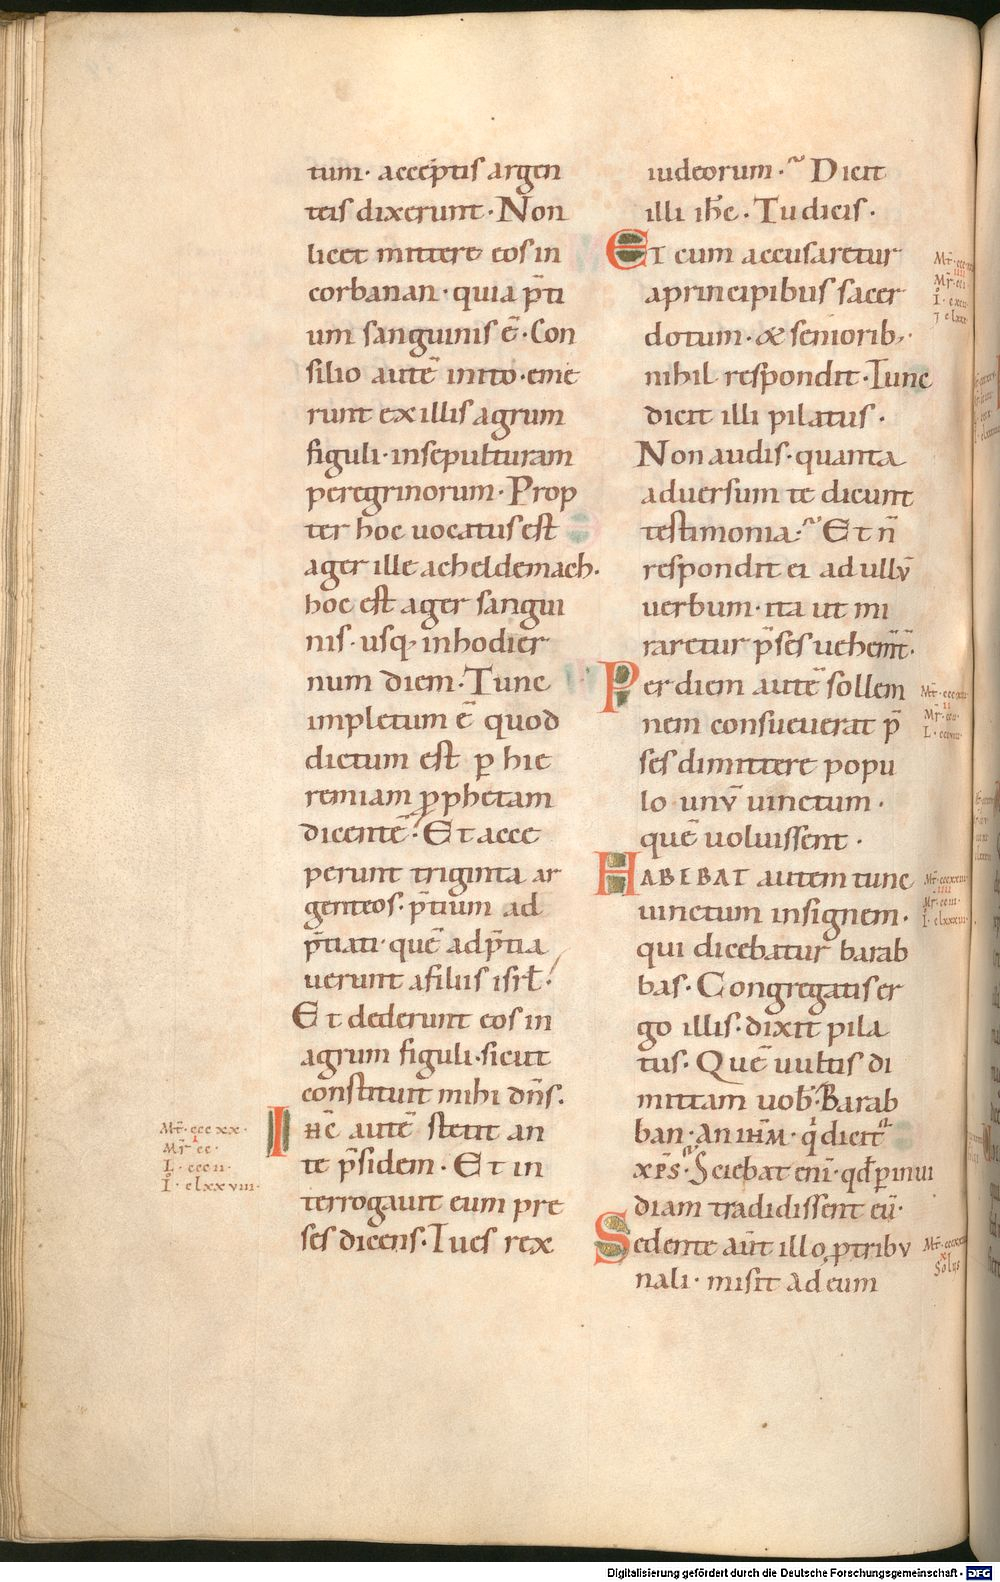 tum · accep̄tis argen
teis dixerunt · Non
licet mittere eos in
corbanan · quia p̄ti
um sanguinis ē · Con
silio autē inito · eme
runt ex illis agrum
figuli · insepulturam
peregrinorum · Prop
ter hoc uocatus est
ager ille acheldemach ·
hoc est ager sangui
nis · usq; inhodier
num diem · Tunc
impletum ē quod
dictum est p̱ hie
remiam p̱phetam
dicentē · Et acce
perunt triginta ar
genteos · p̄tium ad
p̄tiati · quē adp̄tia
uerunt afiliis isrł ·
Et dederunt eos in
agrum figuli · sicut
constituit mihi dn̄s ·
Ihc̄ autē stetit an
te p̄sidem · Et in
terrogauit eum pre
ses dicens · Tu es rex
Mt̄ · ccc xx ·
i
Mr̄ · cc ·
L · ccc ii ·
I · clxxviii ·
iudeorum · Dicit
illi ih̄c · Tu dicis ·
Et cum accusaretur
aprincipibus sacer
dotum · & seniorib; ·
nihil respondit · Tunc
dicit illi pilatus ·
Non audis · quanta
aduersum te dicunt
testimonia : Et n̄
respondit ei ad ullū
uerbum · ita ut mi
raretur p̄ses uehem̄t̄ ·
Per diem autē sollem
nem consueuerat p̄
ses dimittere popu
lo unū uinctum ·
quē uoluissent ·
HABEBAT autem tunc
uinctum insignem ·
qui dicebatur barab
bas · Congregatis er
go illis · dixit pila
tus · Quē uultis di
mittam uob̄ · Barab
ban · an ihm̄ · q̇ dicit
xp̄s · Sciebat eni · qđ p̱ inui
diam tradidissent eū ·
Sedente aūt illo p̱ tribu
nali · misit ad eum
Solus